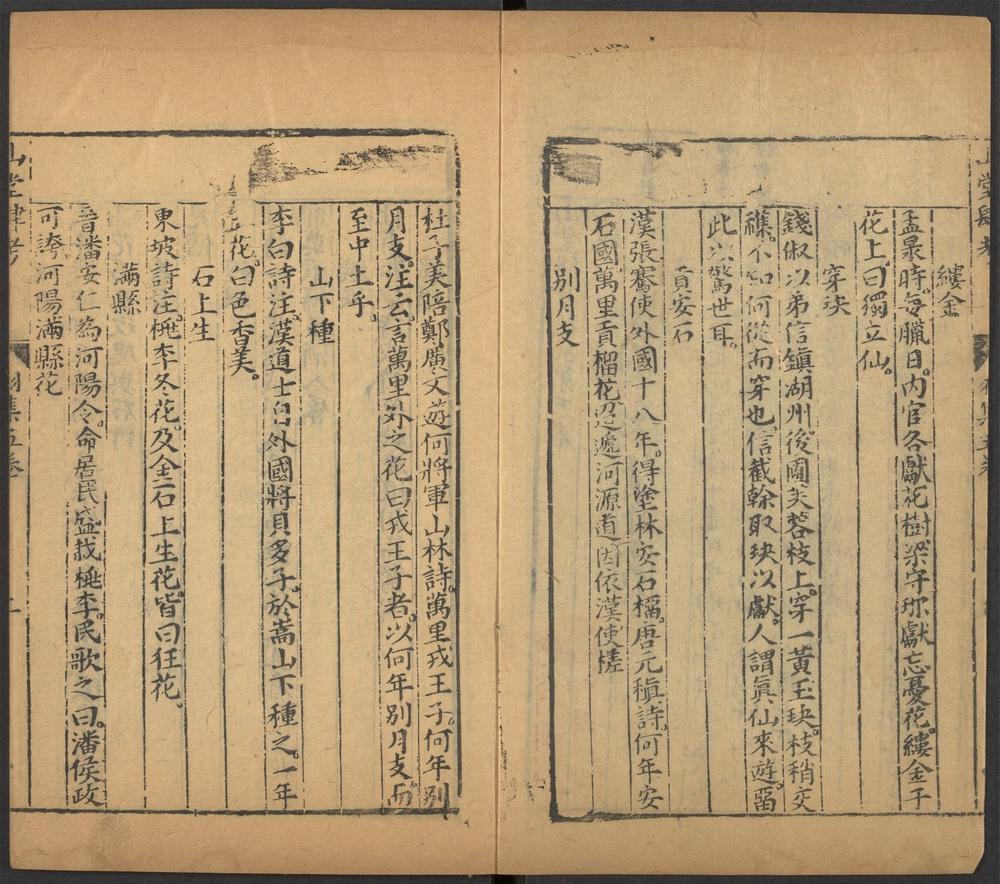 縷金
孟㫤時。每臘日。內官各獻花樹。梁守珍獻忘憂花。縷金于
花上。曰獨立仙。
穿玦
錢俶以弟信鎮湖州。後圃芙蓉枝上。穿一黃玉玦。枝稍交
不知何從而穿也。信截幹取玦以獻。人謂眞仙來遊。留
此以驚世耳。
貢安石
漢張騫使外國十八年。得塗林安石榴。唐元稹詩。何年安
石國萬里貢榴花。迢遞河源道。因依漢使槎
別月支
杜子美陪鄭廣文遊何將軍山林詩。萬里戎王子。何年別
月支。注云。言萬里外之花曰戎王子者。以何年別月支。而
至中土乎。
山下種
李白詩注。漢道士自外國將貝多子。於嵩山下種之。一年
花。白色香美。
石上生
東坡詩注。桃李冬花。及金石上生花。皆曰狂花。
滿縣
晉潘安仁為河陽令。命居民盛找桃李。民歌之曰。潘侯政
可誇河陽滿縣花
山堂肆考
集五卷